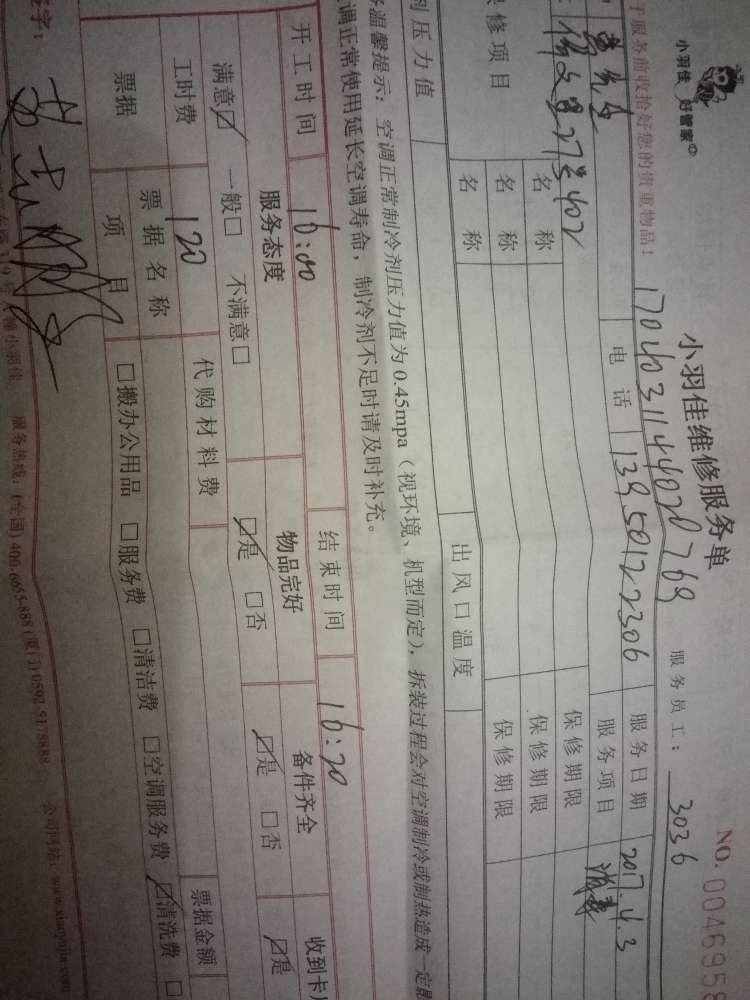 小羽佳 好管家
小羽佳维修服务单
NO. 0046959
1704031144020769
服务员工： 3036
服务前收拾好您的贵重物品！
电话 13950122306
服务日期 2017.4.3
27号402
服务项目
修项目
名称
保修期限
名称
保修期限
名称
保修期限
剂压力值
出风口温度
温馨提示：空调正常制冷剂压力值为0.45mpa（视环境、机型而定），拆装过程会对空调制冷或制热造成一定影
调正常使用延长空调寿命，制冷剂不足时请及时补充。
开工时间 16:00
结束时间 16:20
服务态度
物品完好
备件齐全
收到卡
满意☑ 一般□ 不满意□
☑是 □否
☑是 □否
☑是
工时费 120
代购材料费
票据金额
票据
票据名称
项目
□搬办公用品 □服务费 □清洁费 □空调服务费 ☑清洗费 □
签字：
小羽佳 服务热线：(全国) 400-6655-888 (厦门) 0592-5178888
公司网站：www.xiaoyujia.com